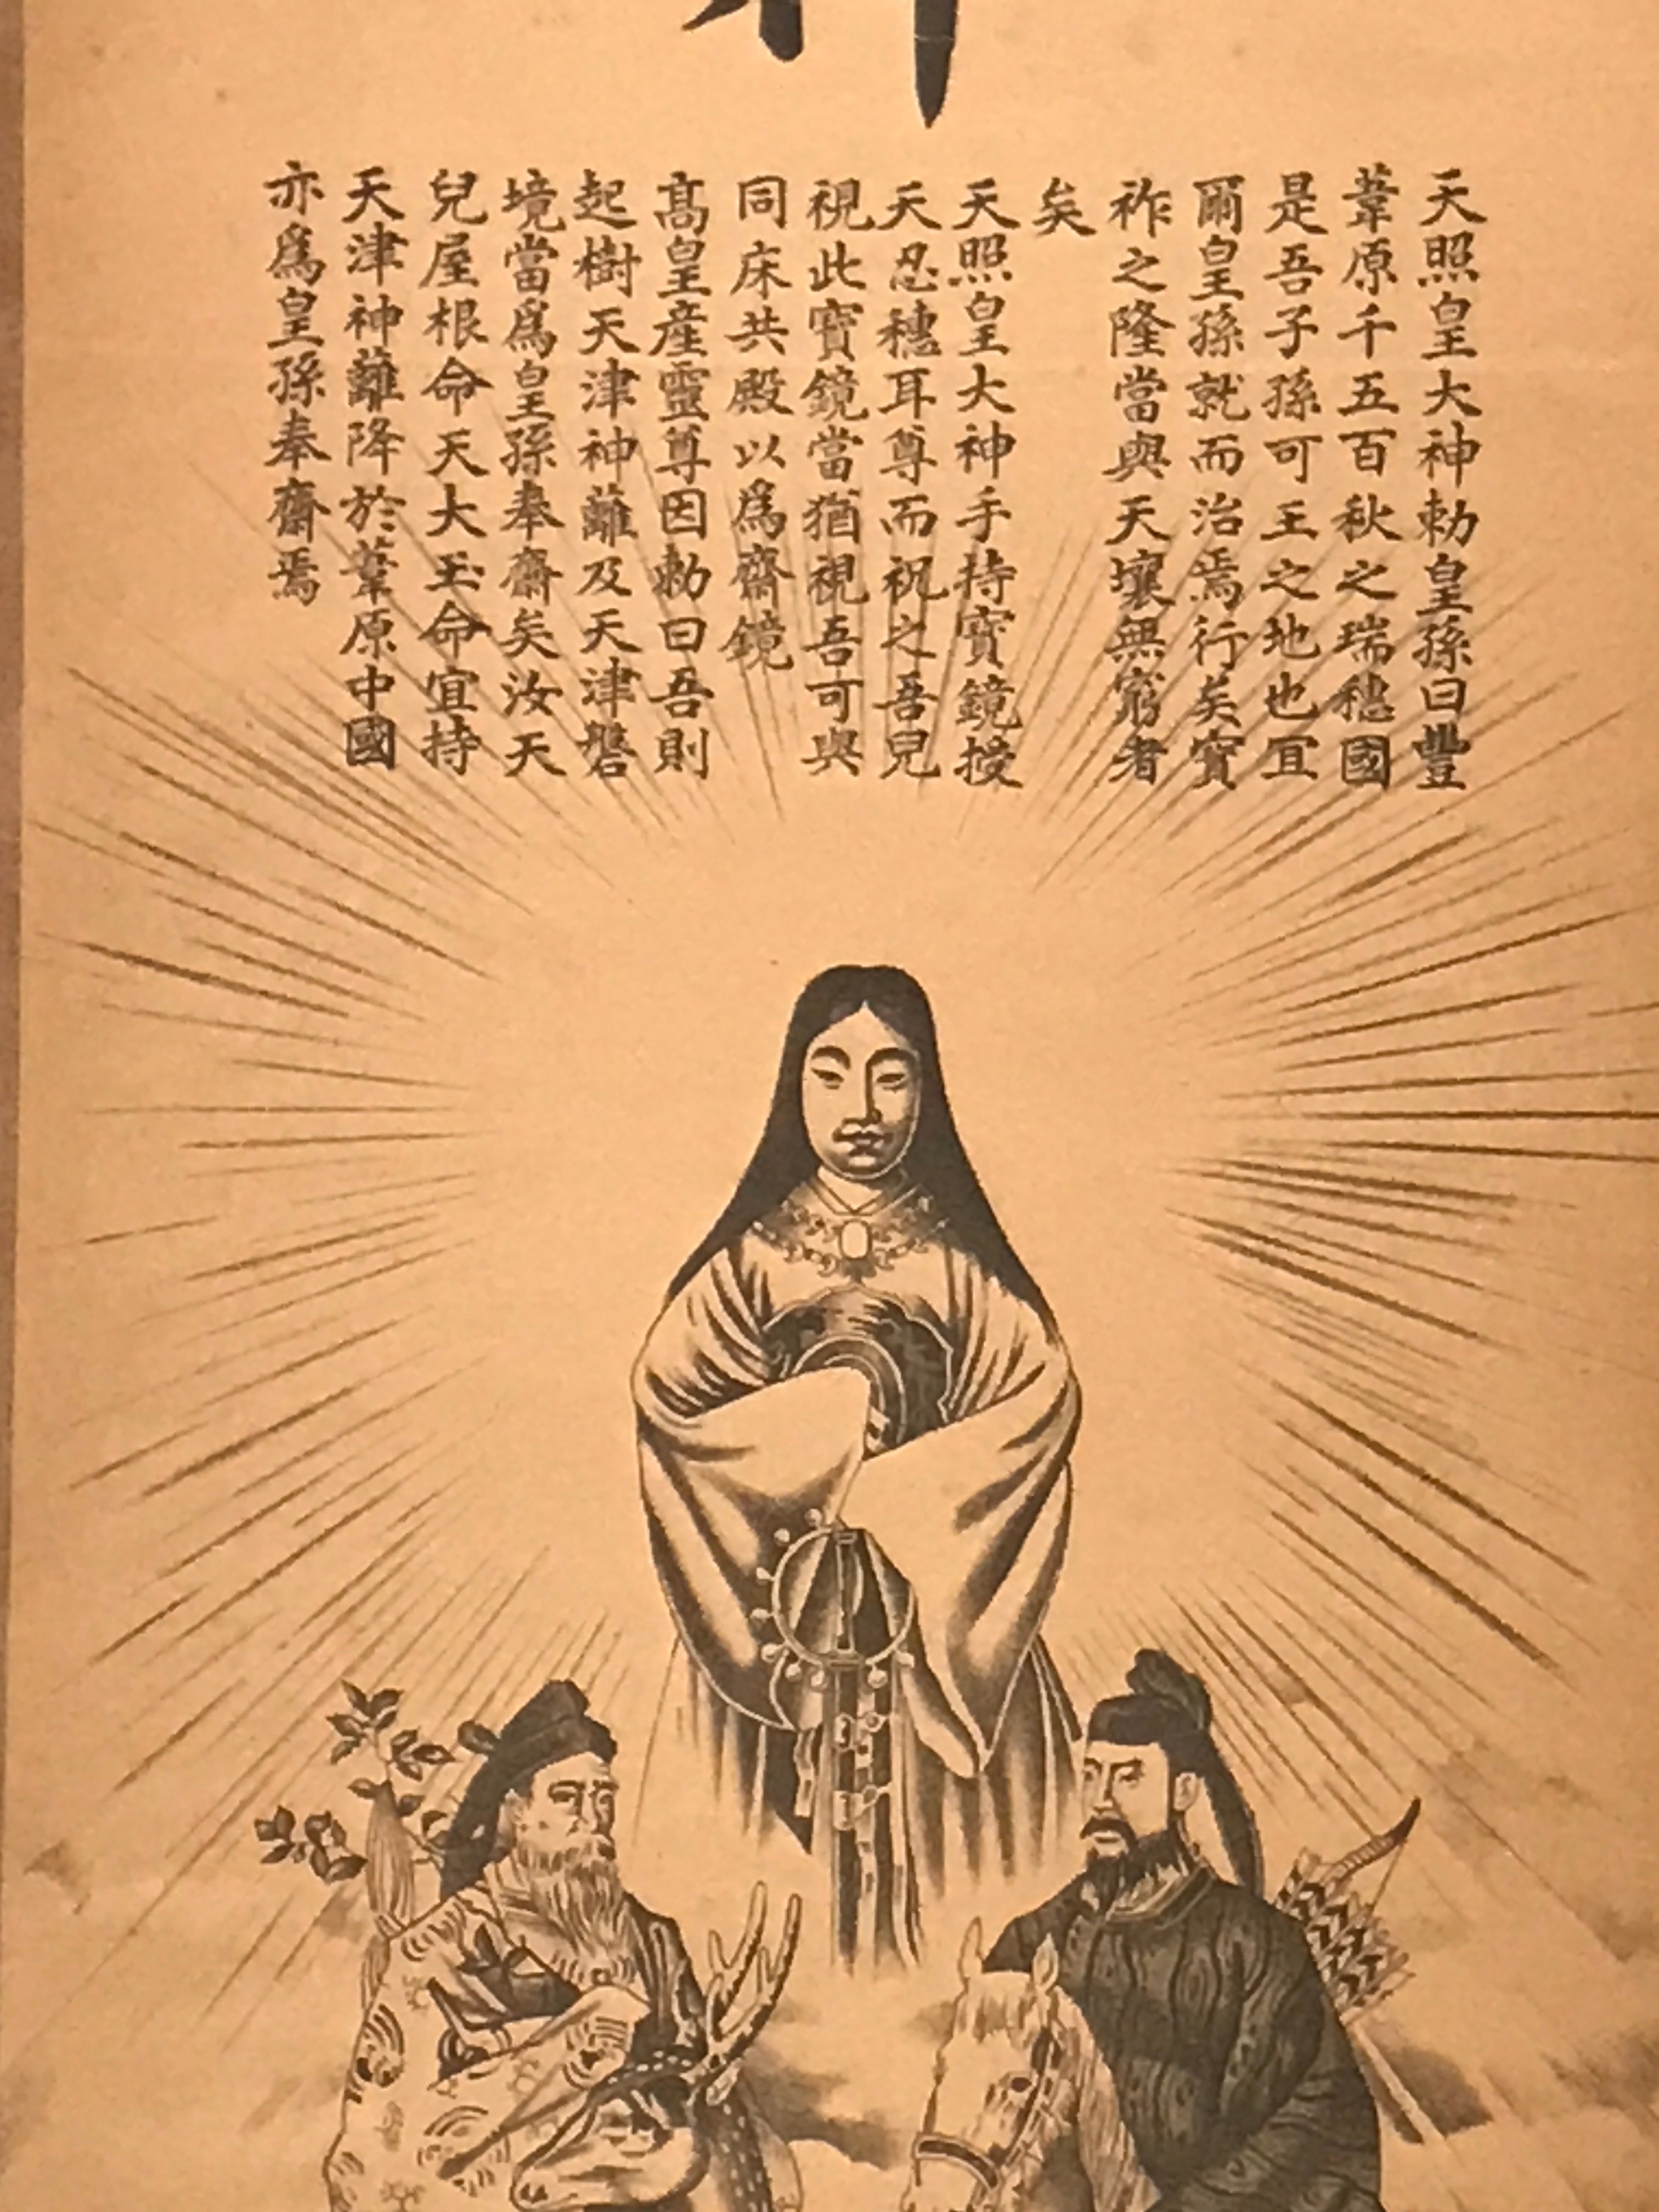 天照皇大神勅皇孫曰豐
葦原千五百秋之瑞穗國
是吾子孫可王之地也宜
爾皇孫就而治焉行矣寶
祚之隆當與天壤無窮者
矣
天照皇大神手持寶鏡授
天忍穗耳尊而祝之吾兒
視此寶鏡當猶視吾可與
同床共殿以爲齋鏡
髙皇産靈尊因勅曰吾則
起樹天津神籬及天津磐
境當爲皇孫奉齋矣汝天
兒屋根命天大玉命宜持
天津神籬降於葦原中國
亦爲皇孫奉齋焉